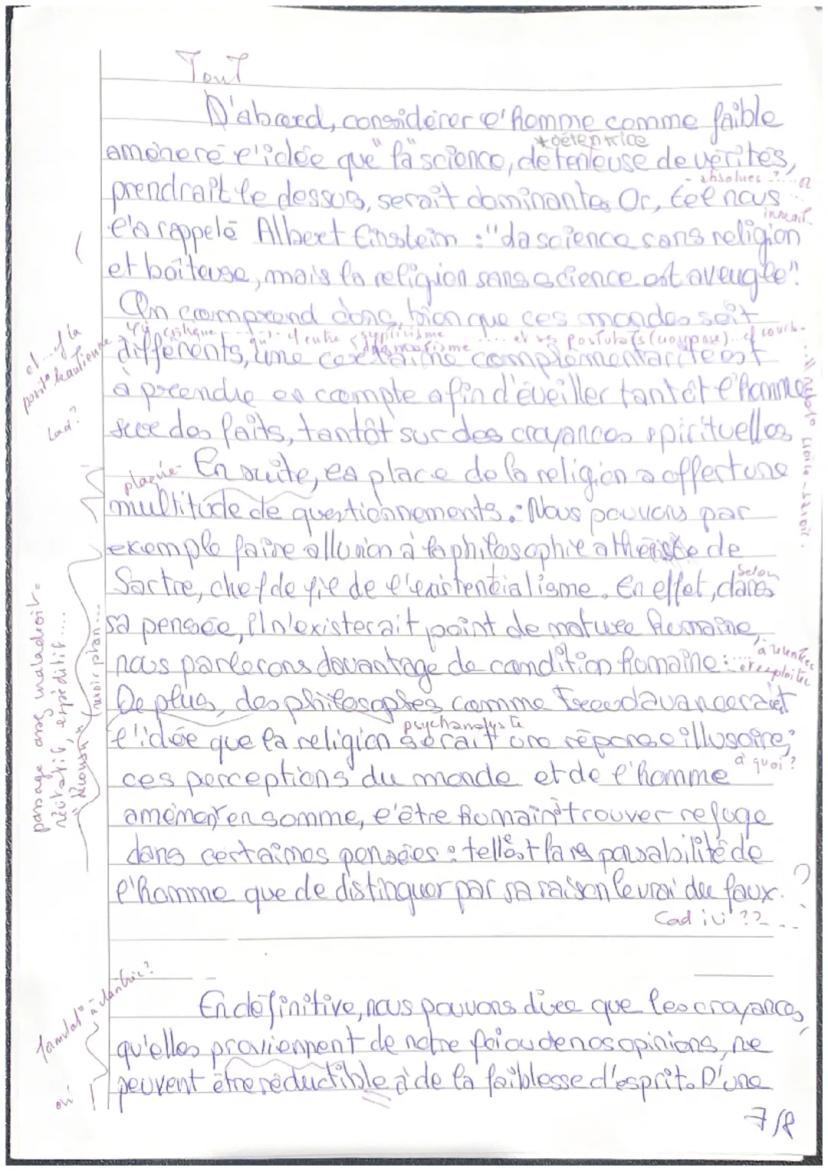 Tout
D'abord, considérer l'homme comme faible
+ détentrice
amènere l'idée que "la" science, detenteuse de vérités,
absolues ?....
prendrait le dessus, serait dominante. Or, tel nous
l'a rappelé Albert Einstein : "La science sans religion
et boiteuse, mais la religion sans science est aveugle".
On comprend donc, bien que ces mondes soit
critique ... entre scepticisme ..... et ses postulats (suppose)..
dogmatisme
différents, une certaine complémentarité est
à prendre en compte afin d'éveiller tantôt l'homme
sur des faits, tantôt sur des croyances spirituelles
et...
Cad ?
plaquée
Ensuite, la place de la religion a offert une
multitude de questionnements. : Nous pouvons par
exemple faire allusion à la philosophie athéiste de
Sartre, chef de file de l'existentialisme. En effet, dans
selon
sa pensée, il n'existerait point de nature humaine,
nous parlerons davantage de condition humaine :
à retenter
réexploiter
De plus, des philosophes comme Freud avancerait
psychanalyste
l'idée que la religion serait une réponse illusoire;
à quoi ?
ces perceptions du monde et de l'homme
amènent en somme, l'être humain à trouver refuge
dans certaines pensées : telle est la responsabilité de
l'homme que de distinguer par sa raison le vrai du faux. ?
Cad ici ??...
passage assez maladroit.
récitatif, expéditif....
plan...
En définitive, nous pouvons dire que les croyances,
qu'elles proviennent de notre foi ou de nos opinions, ne
peuvent être réductible à de la faiblesse d'esprit. D'une
7/8